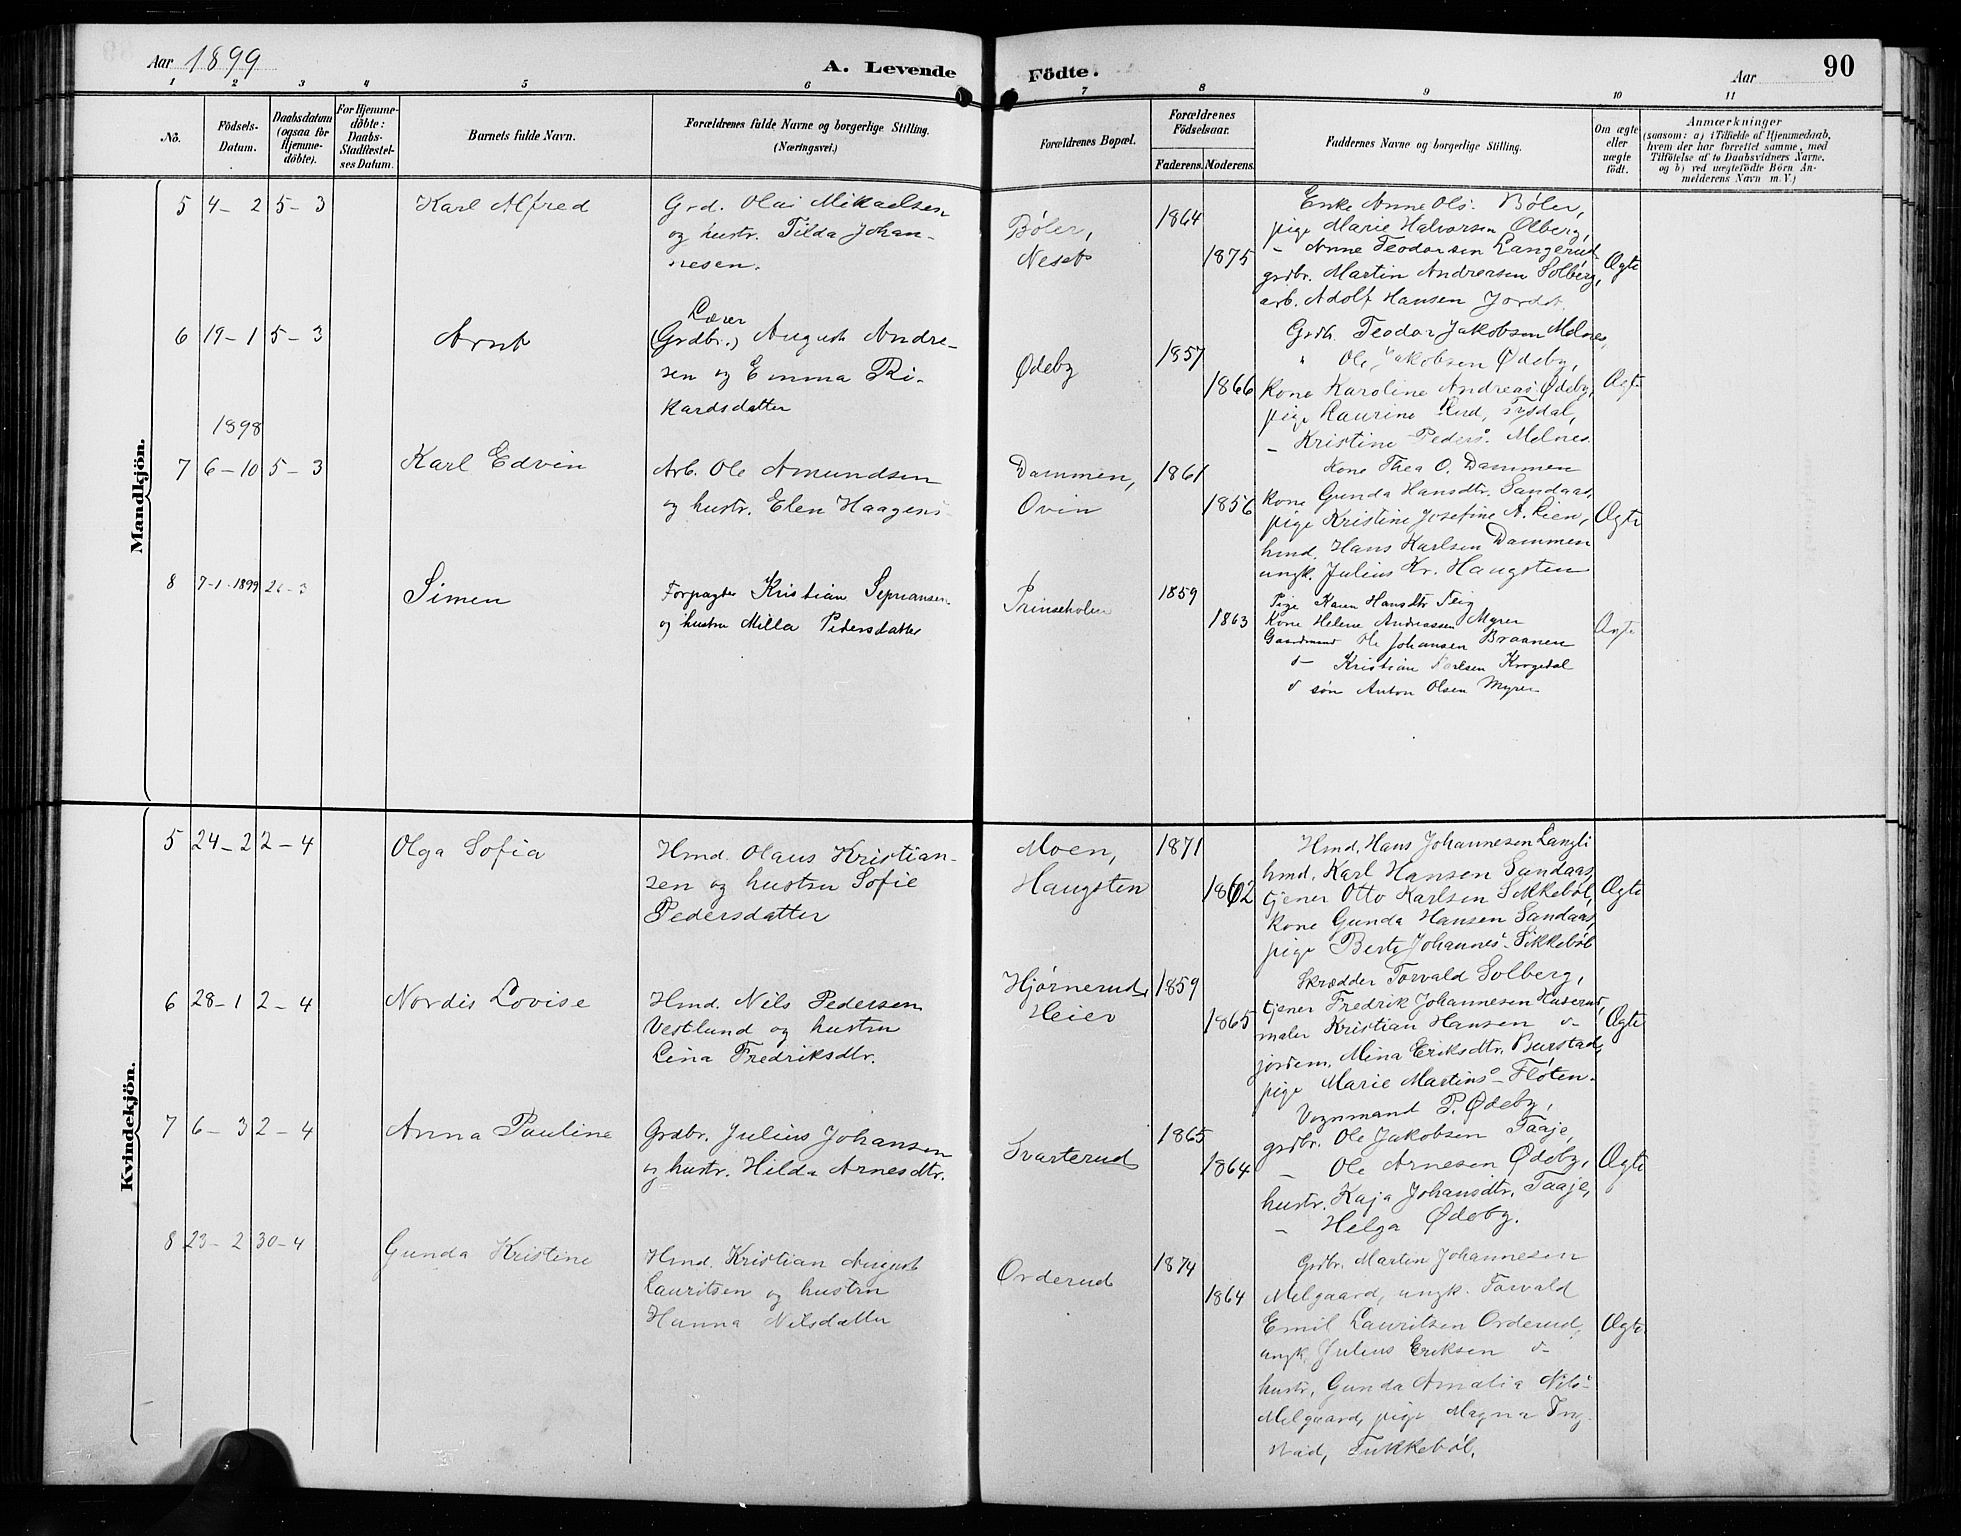 Aar 1899
A. Levende
Födte.
Aar
90
1 2 3 4 5 6 7 8 9 10 11
Nö.
Födsels-
Datum.
Daabsdatum
(ogsaa for
Hjemme-
döbte).
For Hjemme-
döbte:
Daabs-
Stadfæstel-
ses Datum.
Barnets fulde Navn.
Forældrenes fulde Navne og borgerlige Stilling.
(Næringsvei.)
Forældrenes Bopæl.
Forældrenes
Födselsaar.
Faderens. Moderens.
Faddernes Navne og borgerlige Stilling.
Om ægte
eller
uægte
födt.
Anmærkninger
(saasom: a) i Tilfælde af Hjemmedaab,
hvem der har forrettet samme, med
Tilföielse af to Daabsvidners Navne.
og b) ved uægtefödte Börn An-
melderens Navn m. V.)
Mandkjön.
5 4-2 5-3
Karl Alfred
Grd. Olai Mikaelsen
og hustr. Tilda Johan-
nesen.
Bøler,
Neset
1864
1875
Enke Anne Ols. Bøler,
pige Marie Halvorsen Olberg,
- Anne Teodorsen Langerud
grdbr. Martin Andreasen Solberg,
arb. Adolf Hansen Jordet
Ægte
6 19-1 5-3
Arnt
Lærer
(Grdbr.) August Andre-
sen og Emma Ri-
kardsdatter
Ødeby
1857
1866
Grdb. Teodor Jakobsen Melnes,
" Ole Jakobsen Ødeby,
kone Karoline Andreas. Ødeby,
pige Laurine Lud, Tysdal,
- Kristine Peders. Melnes.
Ægt
1898
7 6-10 5-3
Karl Edvin
Arb. Ole Amundsen
og hustr. Elen Haagens
Dammen,
Ovin
1861
1856
Kone Thea O. Dammen
kone Gunda Hansdtr. Sandaas,
pige Kristine Josefine A. Lien,
hmd. Hans Karlsen Dammen
ungk. Julius Kr. Haugsten
Ægte
8 7-1-1899 26-3
Simen
Forpagter Kristian Sepriansen
og hustru Milla Pedersdatter
Prinseholm
1859
1863
Pige Karen Hansdtr Teig
Kone Helene Andreassen Myrer
Gaardmand Ole Johansen Braanen
d- Kristian Karlsen Krogedal
d søn Anton Olsen Myrer
Ægte
Kvindekjön.
5 24-2 2-4
Olga Sofia
Hmd. Olaus Kristian-
sen og hustru Sofie
Pedersdatter
Moen,
Haugsten
1871
1862
Hmd. Hans Johannesen Langli
hmd. Karl Hansen Sandaas,
tjener Otto Karlsen Sikkebøl,
kone Gunda Hansen Sandaas,
pige Berte Johannes. Sikkebøl
Ægte
6 28-1 2-4
Nordis Lovise
Hmd. Nils Pedersen
Vestlund og hustru
Lina Fredriksdtr.
Hjørnerud,
Heier
1859
1865
Skrædder Torvald Solberg,
tjener Fredrik Johannesen Huserud,
maler Kristian Hansen d-
jordem. Mina Eriksdtr. Burstad,
pige Marie Martins- Fløten.
Ægte
7 6-3 2-4
Anna Pauline
Grdbr. Julius Johansen
og hustr. Hilda Arnesdtr.
Svarterud
1865
1864
Vognmand P. Ødeby,
grdbr. Ole Jakobsen Taaje,
- Ole Arnesen Ødeby,
hustr. Kaja Johansdtr. Taaje,
- Helga Ødeby.
Ægte
8 23-2 30-4
Gunda Kristine
Hmd. Kristian August
Lauritsen og hustru
Hanna Nilsdatter
Orderud
1874
1864
Grdbr. Martin Johannesen
Melgaard, ungk. Torvald
Emil Lauritsen Orderud,
ungk. Julius Eriksen d-
hustr. Gunda Amalia Nils-
Melgaard, pige Magna Ing-
stad, Tukkebøl.
Ægte